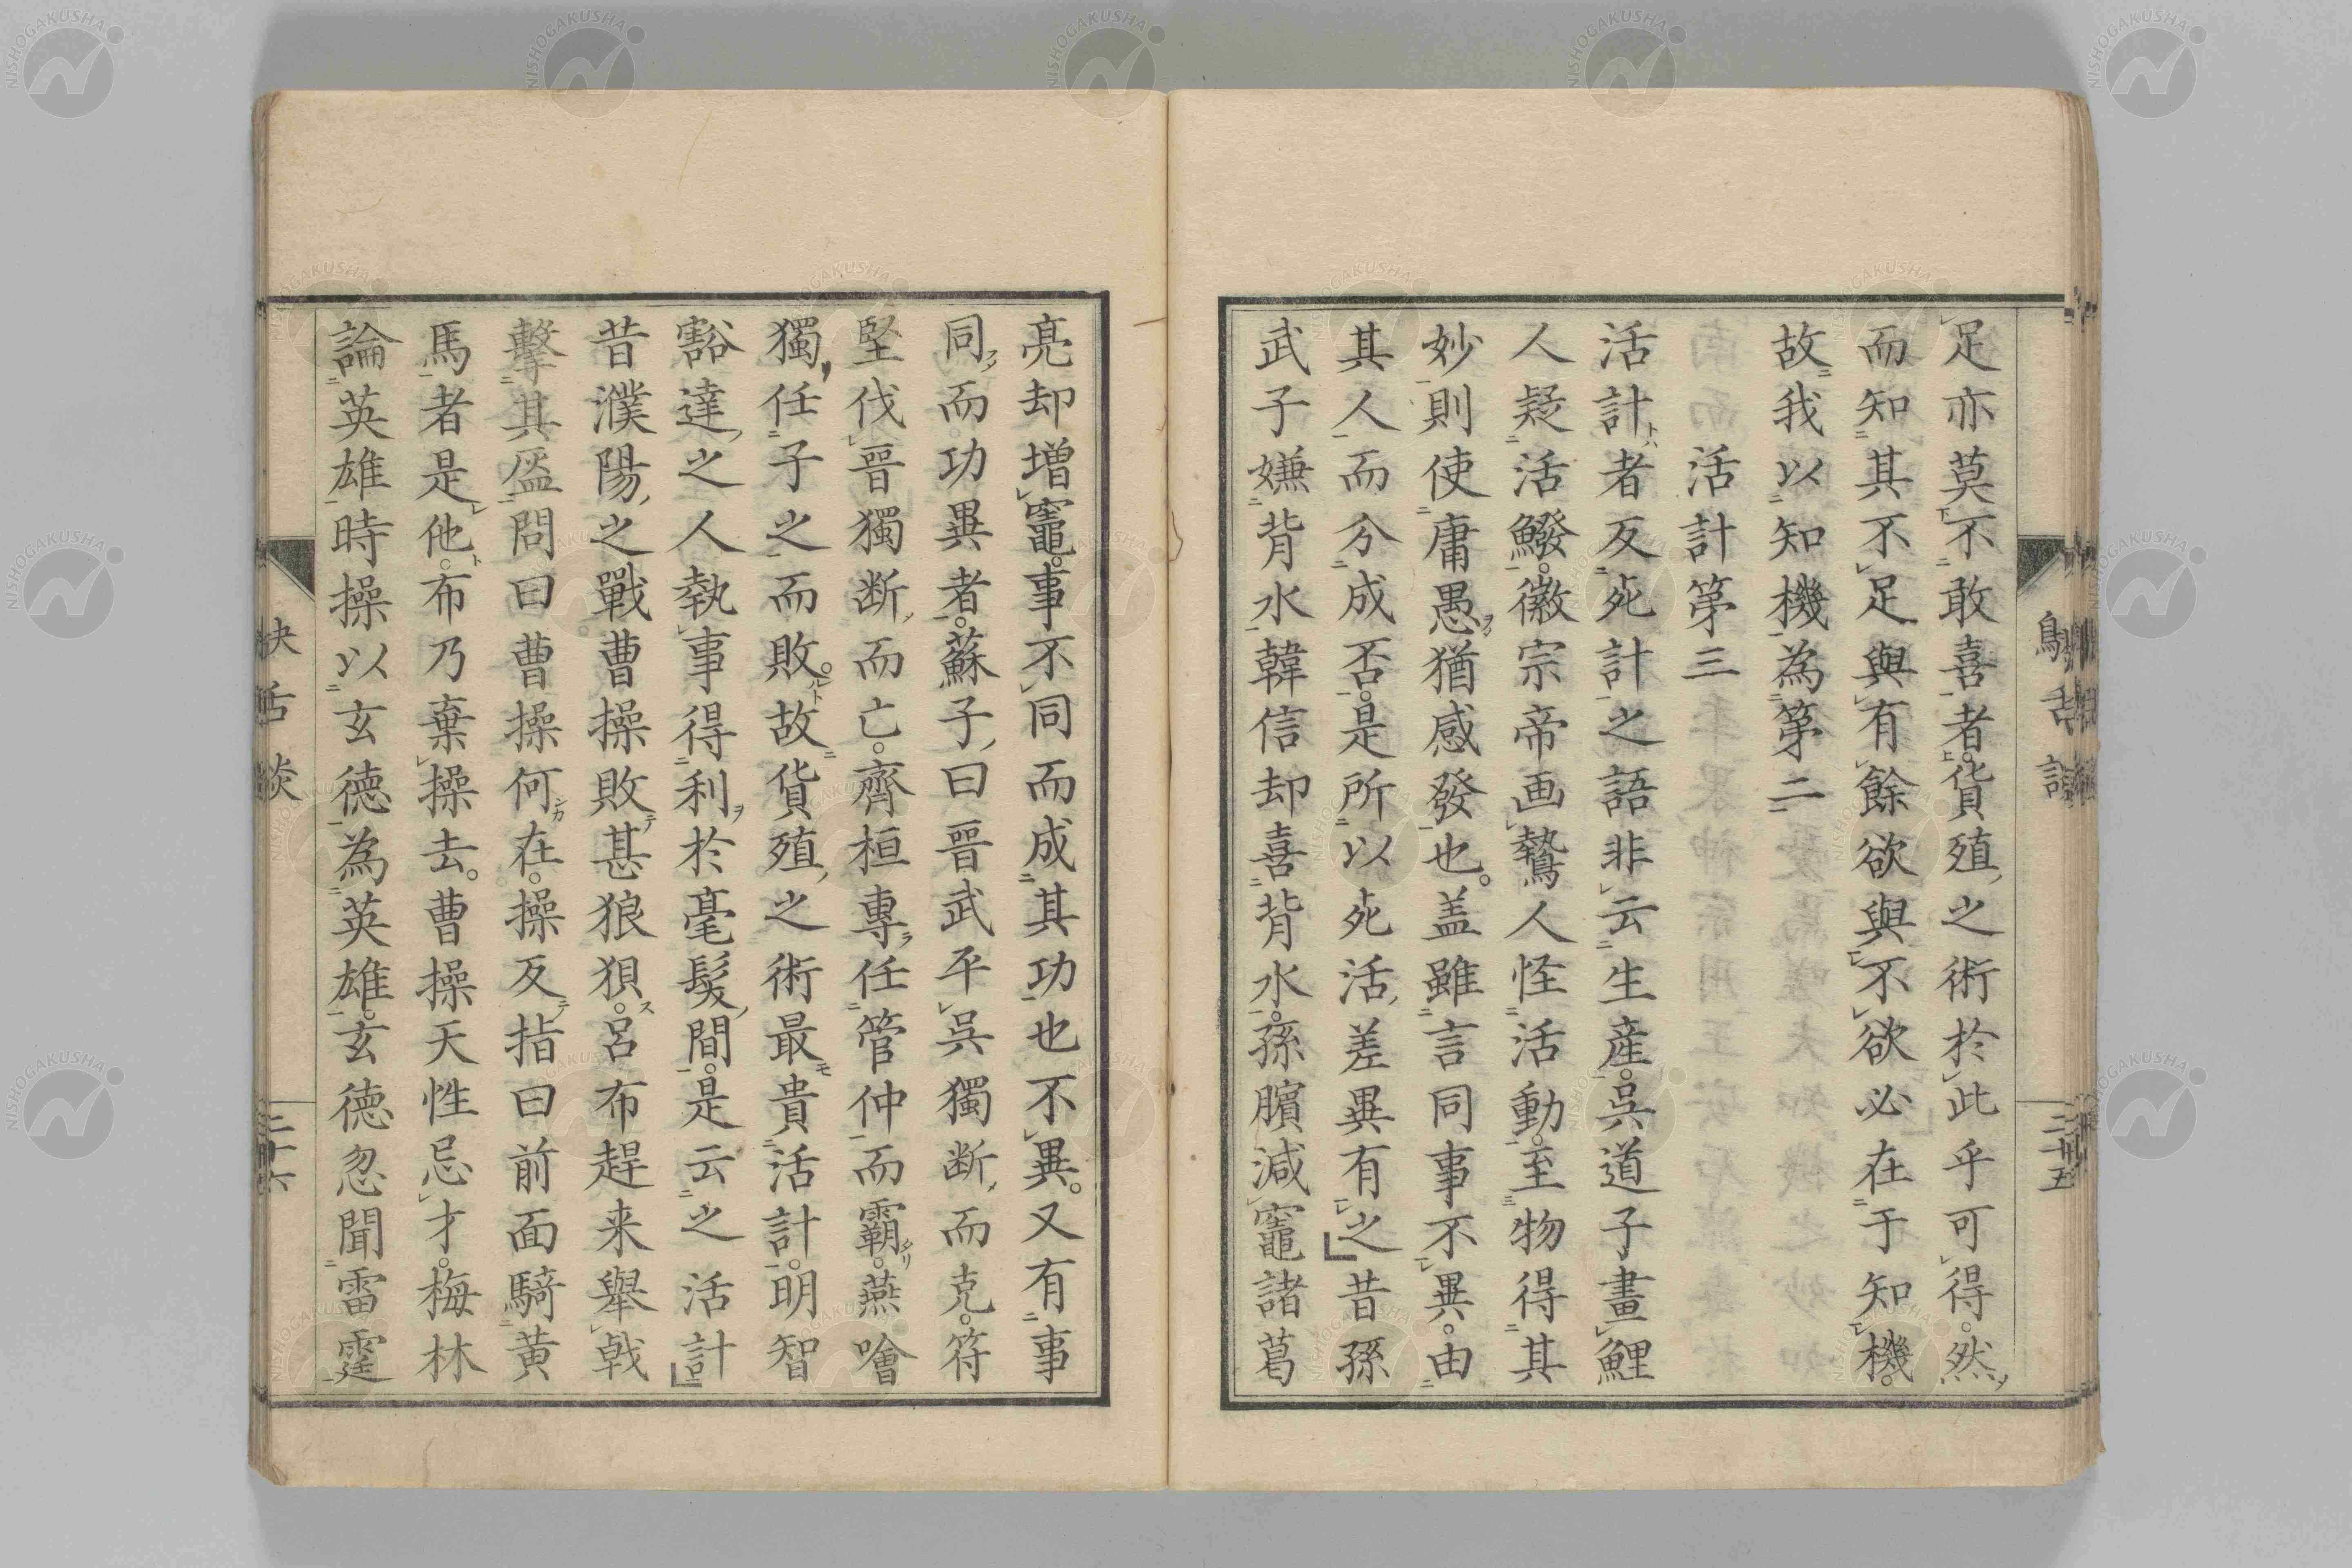 足亦莫不敢喜者。貨殖之術於此乎可得。然
而知其不足與有餘欲與不欲必在于知機。
故我以知機為第二
活計第三
活計者反死計之語非云生産。吳道子畫鯉
人疑活鱍。徽宗帝画鷙人怪活動。至物得其
妙則使庸愚猶感發也。盖雖言同事不異。由
其人而分成否。是所以死活差異有之昔孫
武子嫌背水韓信却喜背水。孫臏減竈諸葛
亮却増竈。事不同而成其功也不異。又有事
同而功異者。蘇子曰晉武平吳獨断而克。符
堅伐晉獨断而亡。齊桓專任管仲而霸。燕噲
獨任子之而敗。故貨殖之術最貴活計。明智
豁達之人執事得利於毫髮間。是云之活計
昔濮陽之戰曹操敗甚狼狽。呂布趕来舉戟
擊其盔問曰曹操何在。操反指曰前面騎黄
馬者是他。布乃棄操去。曹操天性忌才。梅林
論英雄時操以玄德為英雄。玄德忽聞雷霆
二十六